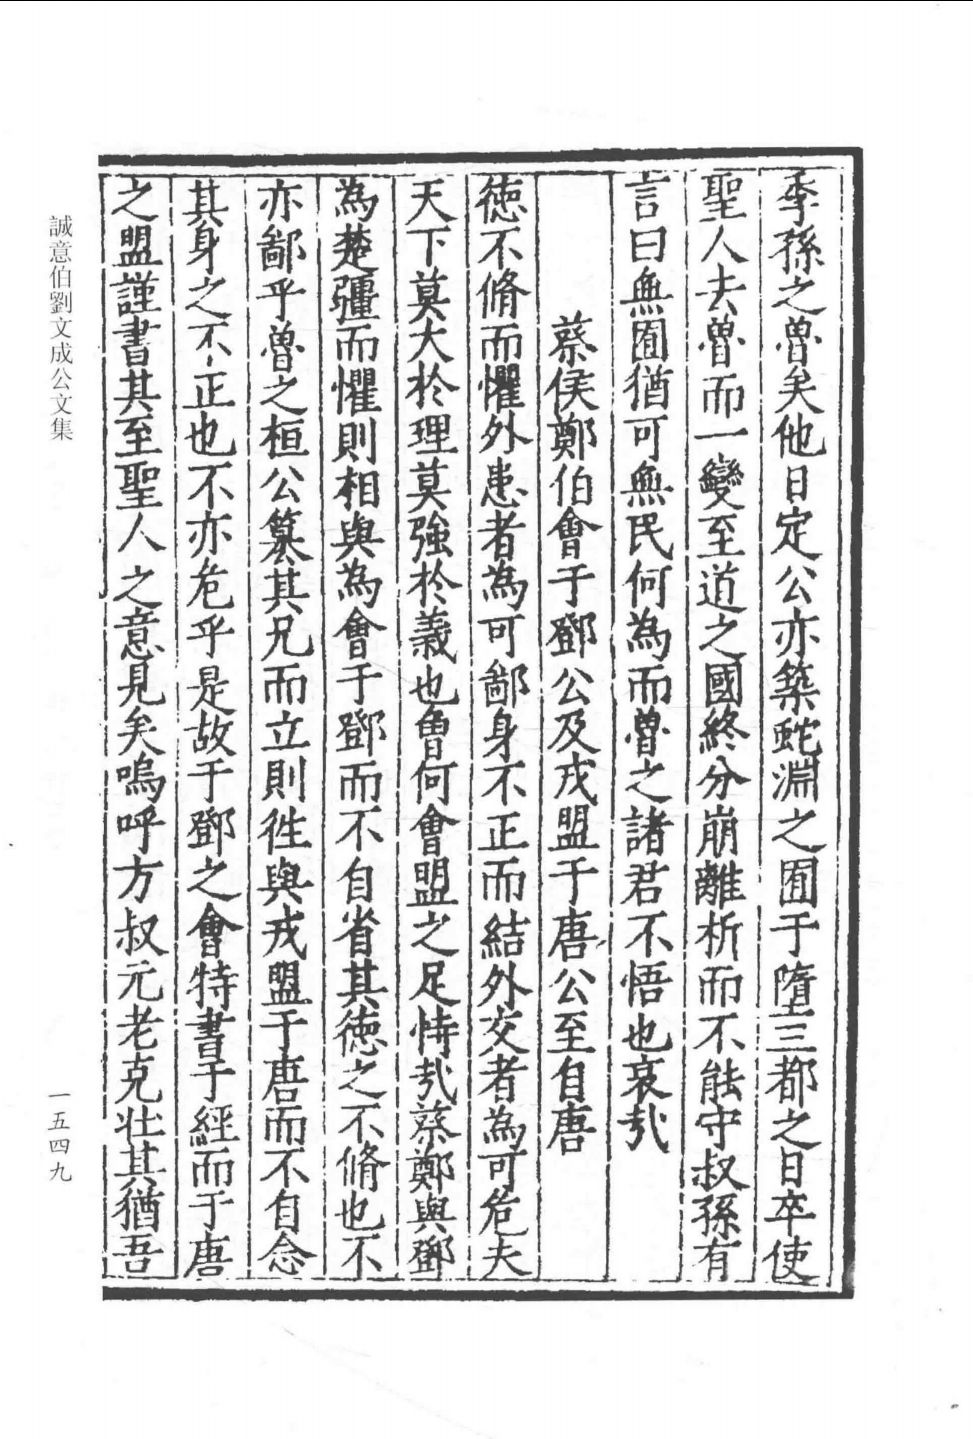 季孫之魯矣他日定公亦築蛇淵之囿于墮三都之日卒使
聖人去魯而一變至道之國終分崩離析而不能守叔孫有
言曰無囿猶可無民何為而魯之諸君不悟也哀哉
蔡侯鄭伯會于鄧公及戎盟于唐公至自唐
德不脩而懼外患者為可鄙身不正而結外交者為可危夫
天下莫大於理莫強於義也魯何會盟之足恃哉蔡鄭與鄧
為楚彊而懼則相與為會于鄧而不自省其德之不脩也不
亦鄙乎魯之桓公簒其兄而立則徃與戎盟于唐而不自念
其身之不正也不亦危乎是故于鄧之會特書于經而于唐
之盟謹書其至聖人之意見矣嗚呼方叔元老克壯其猶吾
誠意伯劉文成公文集
一五四九